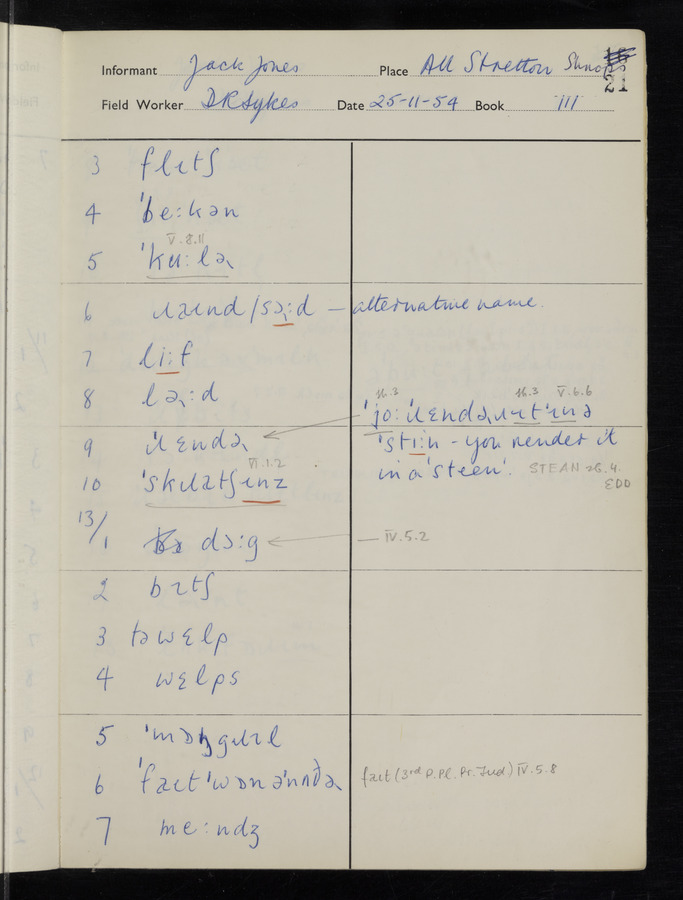 Informant Jack Jones Place All Stretton Shrops
21
Field Worker D R Sykes Date 25-11-54 Book III
3 flɪtʃ
4 ˈbeːkən
V.8.11
5 ˈkuːlə
6 ɹaɪnd/sɔːd — alternative name.
7 liːf
8 laːd
16.3 16.3 V.6.6
ˈjoː ˈɹɛndəɹ ɪt ˈɪn ə
9 ˈɹɛndə
ˈstiːn - you render it
VI.1.2
in a 'steen'. STEAN sb. 4.
EDD
10 ˈskɹatʃɪnz
13/
1 dɔːg
IV.5.2
2 bɪtʃ
3 tə wɛlp
4 wɛlps
5 ˈmɒŋgɹɪl
6 ˈfaɪt ˈwɒn əˈnʊðə fait (3rd P. Pl. Pr. Ind.) IV.5.8
7 meːndʒ